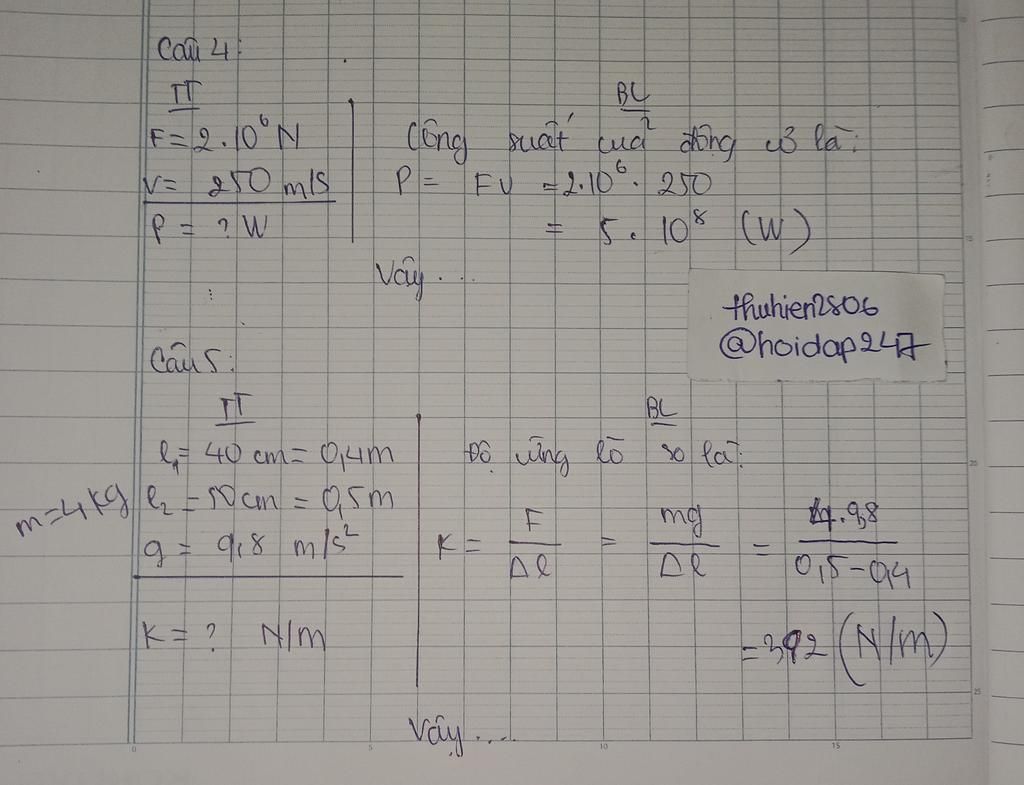 Câu 4:
TT
F = 2.10⁶ N
V = 250 m/s
P = ? W
BL
Công suất của động cơ là:
P = FV = 2.10⁶. 250
= 5. 10⁸ (W)
Vậy ....
thuhien2806
@hoidap247
Câu 5:
TT
l₁ = 40 cm = 0,4m
m = 4 kg
l₂ = 50cm = 0,5m
g = 9,8 m/s²
K = ? N/m
BL
Độ cứng lò so là:
K = F/Δl = mg/Δl = 4.9,8/0,5-0,4
= 392 (N/m)
Vậy ....
0 5 10 15
15
20
25